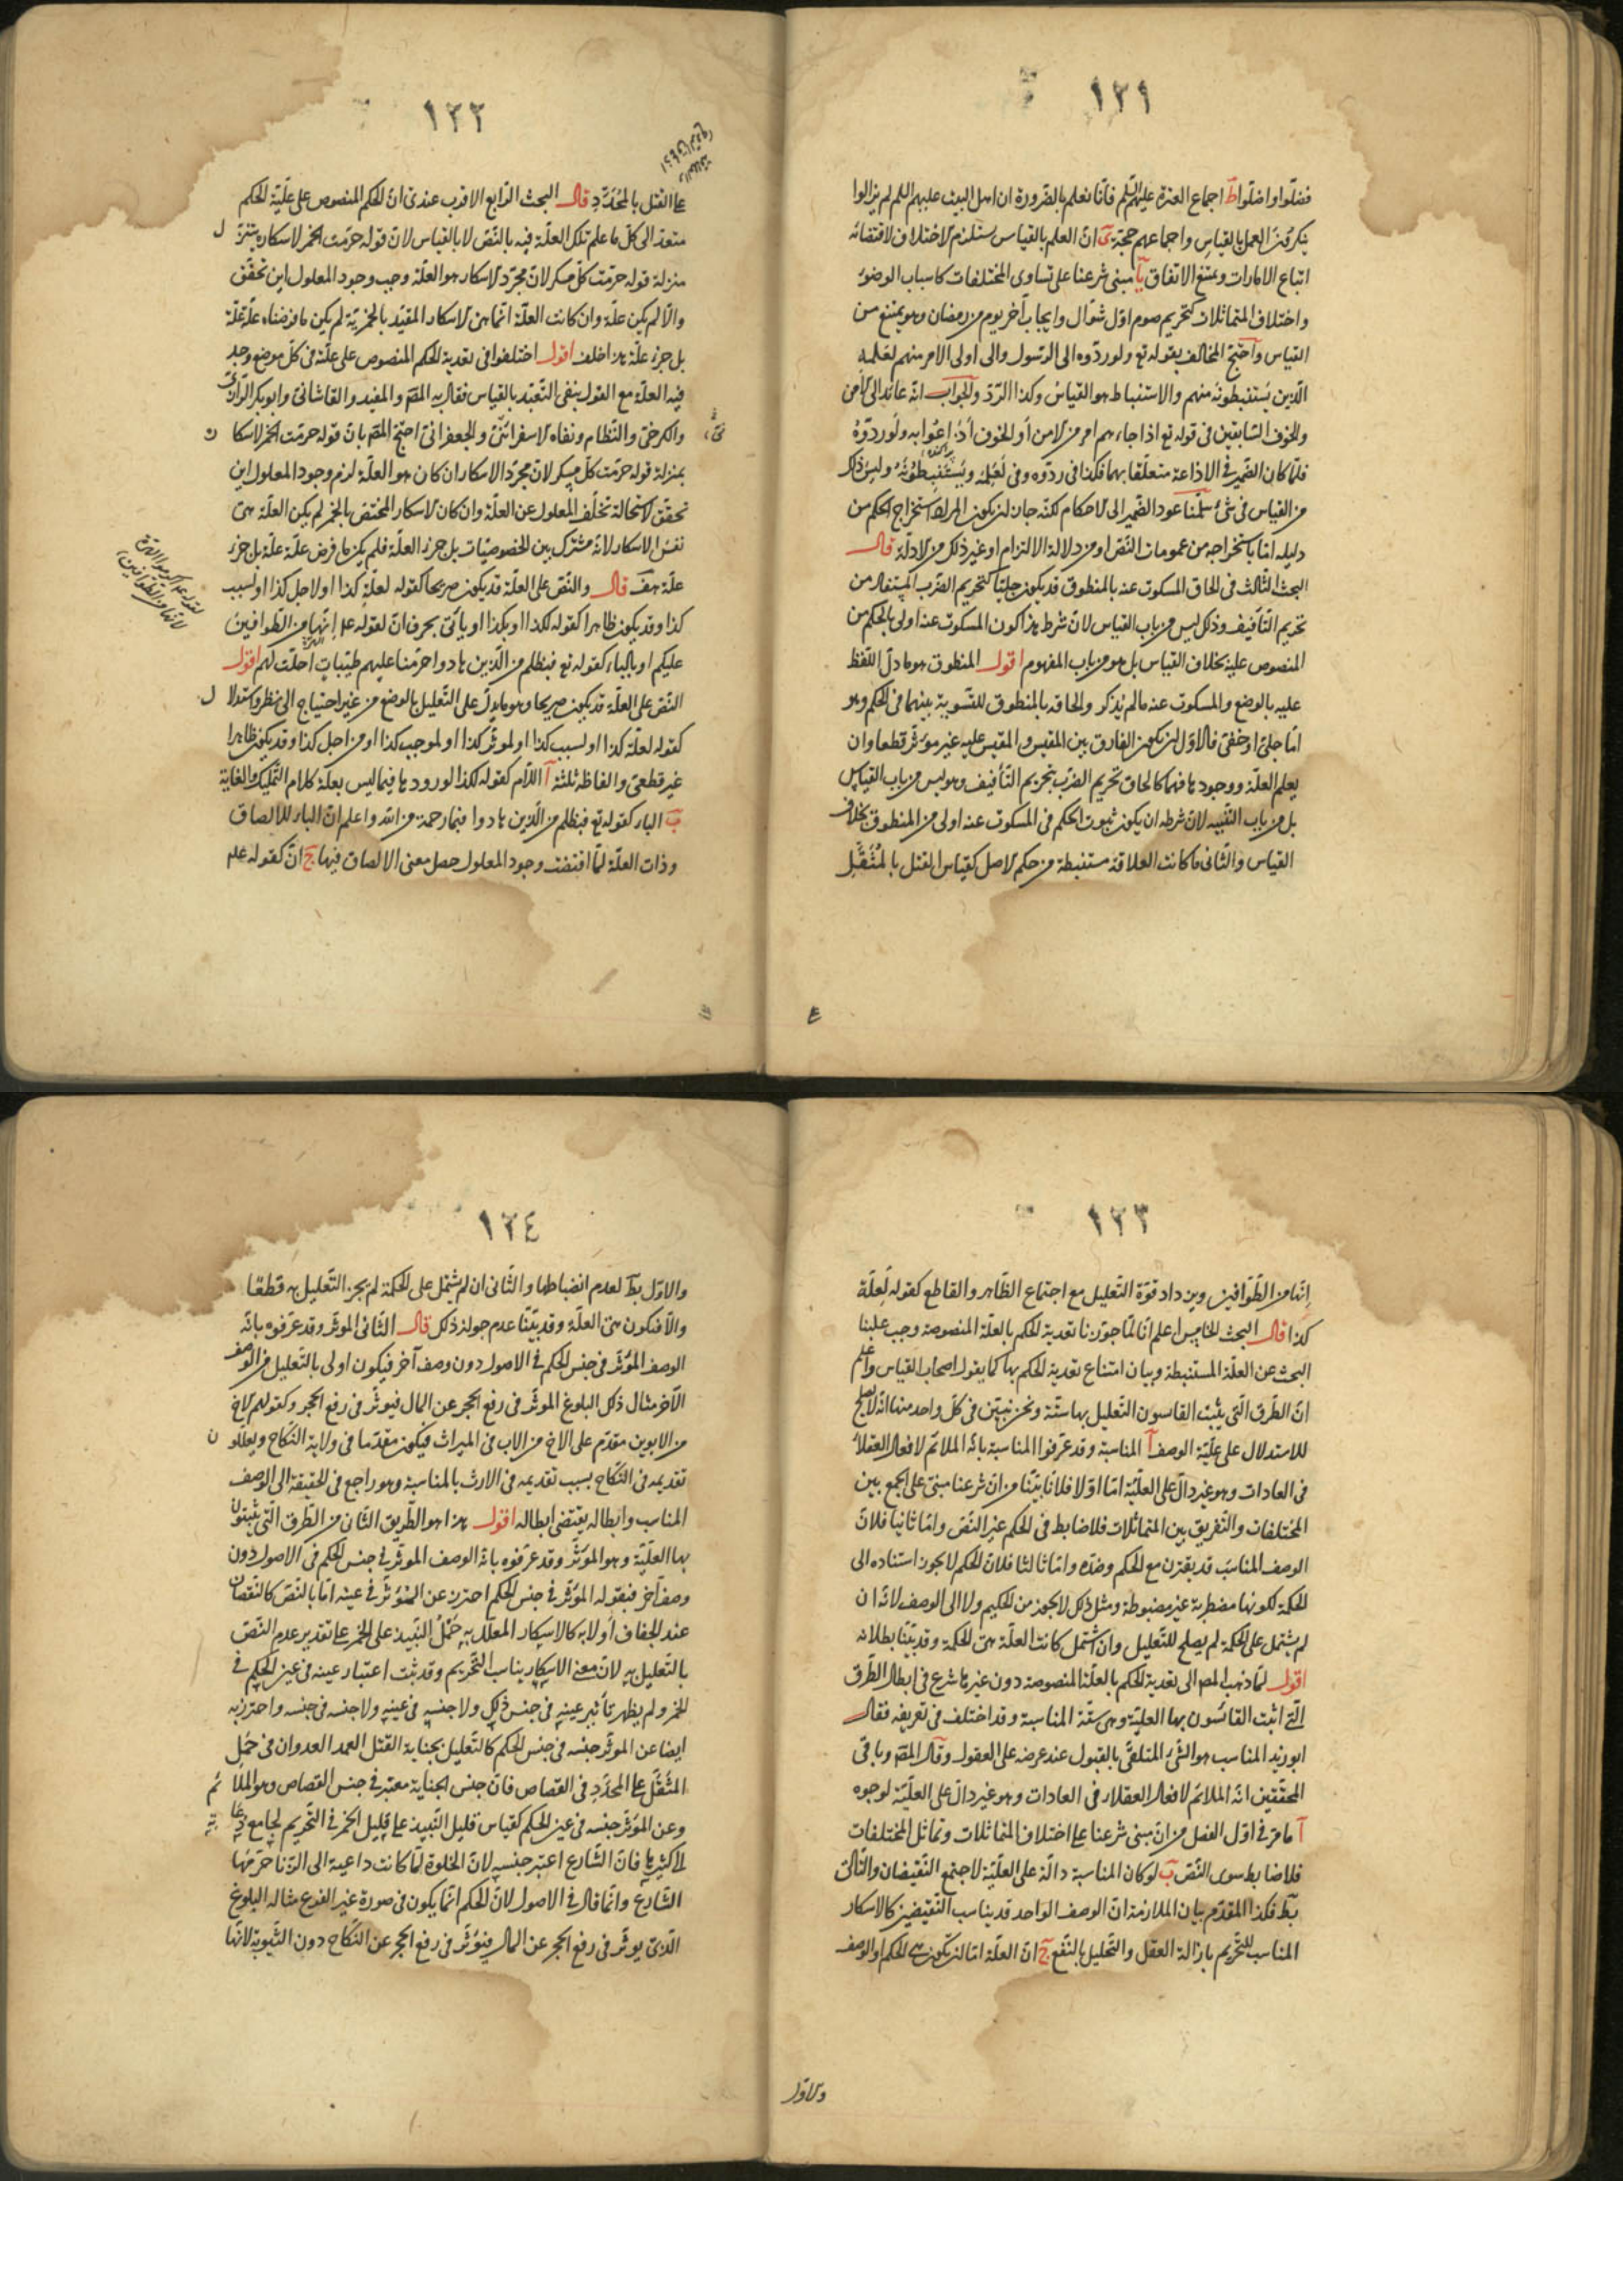 ١٢١
فضلّوا واضلّوا ط اجماع العترة عليهم السلم فانّا نعلم بالضّرورة ان اهل البيت عليهم السلم لم يزالوا
ينكرون العمل بالقياس واجماعهم حجّة ى انّ العلم بالقياس يستلزم الاختلاف لاقتضائه
اتباع الامارات ويمتنع الاتفاق يا مبنى شرعنا على تساوى المختلفات كاسباب الوضوء
واختلاف المتماثلات كتحريم صوم اوّل شوّال وايجاب آخر يوم من رمضان وهو يمنع من
القياس واحتجّ المخالف بقوله تع ولو ردّوه الى الرّسول والى اولى الامر منهم لعلمه
الّذين يستنبطونه منهم والاستنباط هو القياس وكذا الرّدّ والجواب انّه عائد الى الامن
والخوف السّابقين فى قوله تع اذا جاءهم امر من الامن أو الخوف أذاعوا به ولو ردّوهُ
فلمّا كان الضّمير فى الاذاعة متعلّقا بهما فكذا فى ردّوه وفى لَعَلِمَهُ ويَسْتَنْبِطُونَهُ وليس ذلك
من القياس فى شئ سلّمنا عود الضّمير الى الاحكام لكنّه جاز ان يكون المراد استخراج الحكم من
دليله امّا باستخراجه من عمومات النّصّ او من دلالة الالتزام او غير ذلك من الادلّة قال
البحث الثّالث فى الحاق المسكوت عنه بالمنطوق قد يكون جليّا كتحريم الضّرب المستفاد من
تحريم التّأفيف وذلك ليس من باب القياس لانّ شرط هذا كون المسكوت عنه اولى بالحكم من
المنصوص عليه بخلاف القياس بل هو من باب المفهوم اقول المنطوق هو ما دلّ اللّفظ
عليه بالوضع والمسكوت عنه ما لم يُذكر والحاقه بالمنطوق للتّسوية بينهما فى الحكم وهو
امّا جلىّ او خفىّ فالاوّل ان يكون الفارق بين المقيس والمقيس عليه غير مؤثّر قطعا وان
يعلم العلّة ووجودها فيهما كالحاق تحريم الضّرب بتحريم التّأفيف وهو ليس من باب القياس
بل من باب التّنبيه لانّ شرطه ان يكون ثبوت الحكم فى المسكوت عنه اولى من المنطوق بخلاف
القياس والثّانى ما كانت العلاقة مستنبطة من حكم الاصل كقياس القتل بالمُثَقَّل
١٢٢
على القتل بالمُحَدَّدِ قال البحث الرّابع الاقرب عندى انّ الحكم المنصوص على علّيّة الحكم
متعدّ الى كلّ ما علم تلك العلّة فيه بالنّصّ لا بالقياس لانّ قوله حرّمت الخمر لاسكاره يتنزّل
منزلة قوله حرّمت كلّ مسكر لانّ مجرّد الاسكار هو العلّة وجب وجود المعلول اين تحقّق
والّا لم يكن علّة وان كانت العلّة انّما هى الاسكار المقيّد بالخمريّة لم يكن ما فرضناه علّة علّة
بل جزء علّة هذا خلف اقول اختلفوا فى تعدية الحكم المنصوص على علّة فى كلّ موضع وجد
فيه العلّة مع القول بنفى التّعبّد بالقياس فقال به المصّ والمفيد والقاشانى وابو بكر الرّازىّ
والكرخىّ والنّظام ونفاه الاسفرائنىّ والجعفرانىّ احتجّ المصّ بانّ قوله حرّمت الخمر لاسكارها
بمنزلة قوله حرّمت كلّ مسكر لانّ مجرّد الاسكار ان كان هو العلّة لزم وجود المعلول اين
تحقّق لاستحالة تخلّف المعلول عن العلّة وان كان الاسكار المختصّ بالخمر لم يكن العلّة هى
نفس الاسكار لانّه مشترك بين الخصوصيّات بل جزء العلّة فلم يكن ما فرض علّة علّة بل جزء
علّة هف قال والنّصّ على العلّة قد يكون صريحا كقوله لعلّة كذا او لاجل كذا او لسبب
كذا وقد يكون ظاهرا كقوله لكذا او بكذا او يأتى بحرف انّ لقوله عم إنّها من الطّوافين
عليكم او بالباء كقوله تع فبظلم من الّذين هادوا حرّمنا عليهم طيّبات احلّت لهم اقول
النّصّ على العلّة قد يكون صريحا وهو ما يدلّ على التّعليل بالوضع من غير احتياج الى نظر واستدلال
كقوله لعلّة كذا او لسبب كذا او لمؤثّر كذا او لموجب كذا او من اجل كذا وقد يكون ظاهرا
غير قطعىّ والفاظه ثلثة آ اللّام كقوله لكذا لورودها فيما ليس بعلّة كلام التّمليك والغاية
ب الباء كقوله تع فبظلم من الّذين هادوا فبما رحمة من الله واعلم انّ الباء للالصاق
وذات العلّة لمّا اقتضت وجود المعلول حصل معنى الالصاق فيها ج انّ كقوله عم
١٢٣
اِنّها من الطّوّافين ويزداد قوّة التّعليل مع اجتماع الظّاهر والقاطع كقوله لِعِلّة
كذا قال البحث الخامس اعلم انّا لمّا جوّزنا تعدية الحكم بالعلّة المنصوصة وجب علينا
البحث عن العلّة المستنبطة وبيان امتناع تعدية الحكم بها كما يقول اصحاب القياس واعلم
انّ الطّرق الّتى يثبت القايسون التّعليل بها ستّة ونحن نبيّن فى كلّ واحد منها انّه لا يصلح
للاستدلال على علّيّة الوصف آ المناسبة وقد عرّفوا المناسبة بانّه الملائم لافعال العقلاء
فى العادات وهو غير دالّ على العلّيّة امّا اوّلا فلانّا بيّنّا من انّ شرعنا مبنىّ على الجمع بين
المختلفات والتّفريق بين المتماثلات فلا ضابط فى الحكم غير النّصّ وامّا ثانيا فلانّ
الوصف المناسب قد يقترن مع الحكم وضدّه وامّا ثالثا فلانّ الحكم لا يجوز استناده الى
الحكمة لكونها مضطربة غير مضبوطة ومثل ذلك لا يجوز من الحكيم ولا الى الوصف لانّه ان
لم يشتمل على الحكمة لم يصلح للتّعليل وان اشتمل كانت العلّة هى الحكمة وقد بيّنّا بطلانه
اقول لمّا ذهب المص الى تعدية الحكم بالعلّة المنصوصة دون غيرها شرع فى ابطال الطّرق
الّتى اثبت القائسون بها العلّيّة وهى ستّة المناسبة وقد اختلف فى تعريفه فقال
ابو زيد المناسب هو الشّئ المتلقّى بالقبول عند عرضه على العقول وقال المصّ وباقى
المحقّقين انّه الملائم لافعال العقلاء فى العادات وهو غير دالّ على العلّيّة لوجوه
آ ما مرّ فى اوّل الفصل من انّ مبنى شرعنا على اختلاف المتماثلات وتماثل المختلفات
فلا ضابط سوى النّصّ ب لو كان المناسبة دالّة على العلّيّة لاجتمع النّقيضان والتّالى
بط فكذا المقدّم بيان الملازمة انّ الوصف الواحد قد يناسب النّقيضين كالاسكار
المناسب للتّحريم بازالة العقل والتّحليل بالنّفع ج انّ العلّة امّا ان تكون هى الحكم او الوصف
والاوّل
١٢٤
والاوّل بط لعدم انضباطها والثّانى ان لم يشتمل على الحكمة لم يجز التّعليل به قطعا
والّا فتكون هى العلّة وقد بيّنّا عدم جواز ذلك قال الثّانى المؤثّر وقد عرّفوه بانّه
الوصف المؤثّر فى جنس الحكم فى الاصول دون وصف آخر فيكون اولى بالتّعليل من الوصف
الآخر مثال ذلك البلوغ المؤثّر فى رفع الحجر عن المال فيؤثّر فى رفع الحجر وكقولهم الاخ
من الابوين مقدّم على الاخ من الاب فى الميراث فيكون مقدّما فى ولاية النّكاح ويعلّلون
تقديمه فى النّكاح بسبب تقديمه فى الارث بالمناسبة وهو راجع فى الحقيقة الى الوصف
المناسب وابطاله يقتضى ابطاله اقول هذا هو الطّريق الثّانى من الطّرق الّتى يثبتون
بها العلّيّة وهو المؤثّر وقد عرّفوه بانّه الوصف المؤثّر فى جنس الحكم فى الاصول دون
وصف آخر فبقوله المؤثّر فى جنس الحكم احترز عن المؤثّر فى عينه امّا بالنّصّ كالنّقصان
عند الجفاف أو لا به كالاسكار المعلّل به حَمْلُ النّبيذ على الخمر على تقدير عدم النّصّ
بالتّعليل به لانّ معنى الاسكار يناسب التّحريم وقد ثبت اعتبار عينه فى عين الحكم فى
الخمر ولم يظهر تأثير عينه فى جنس ذلك ولا جنسه فى عينه ولا جنسه فى جنسه واحترز به
ايضا عن المؤثّر جنسه فى جنس الحكم كالتّعليل بجناية القتل العمد العدوان فى حَمْل
المثقّل على المحدّد فى القصاص فانّ جنس الجناية معتبر فى جنس القصاص وهو الملائم
وعن المؤثّر جنسه فى عين الحكم كقياس قليل النّبيذ على قليل الخمر فى التّحريم لجامع
الى كثيرها فانّ الشّارع اعتبر جنسه لانّ الخلوة لمّا كانت داعية الى الزّنا حرّمها
الشّارع وانّما قال فى الاصول لانّ الحكم انّما يكون فى صورة غير الفرع مثاله البلوغ
الّذى يؤثّر فى رفع الحجر عن المال فيؤثّر فى رفع الحجر عن النّكاح دون الثّيوبة لانّها